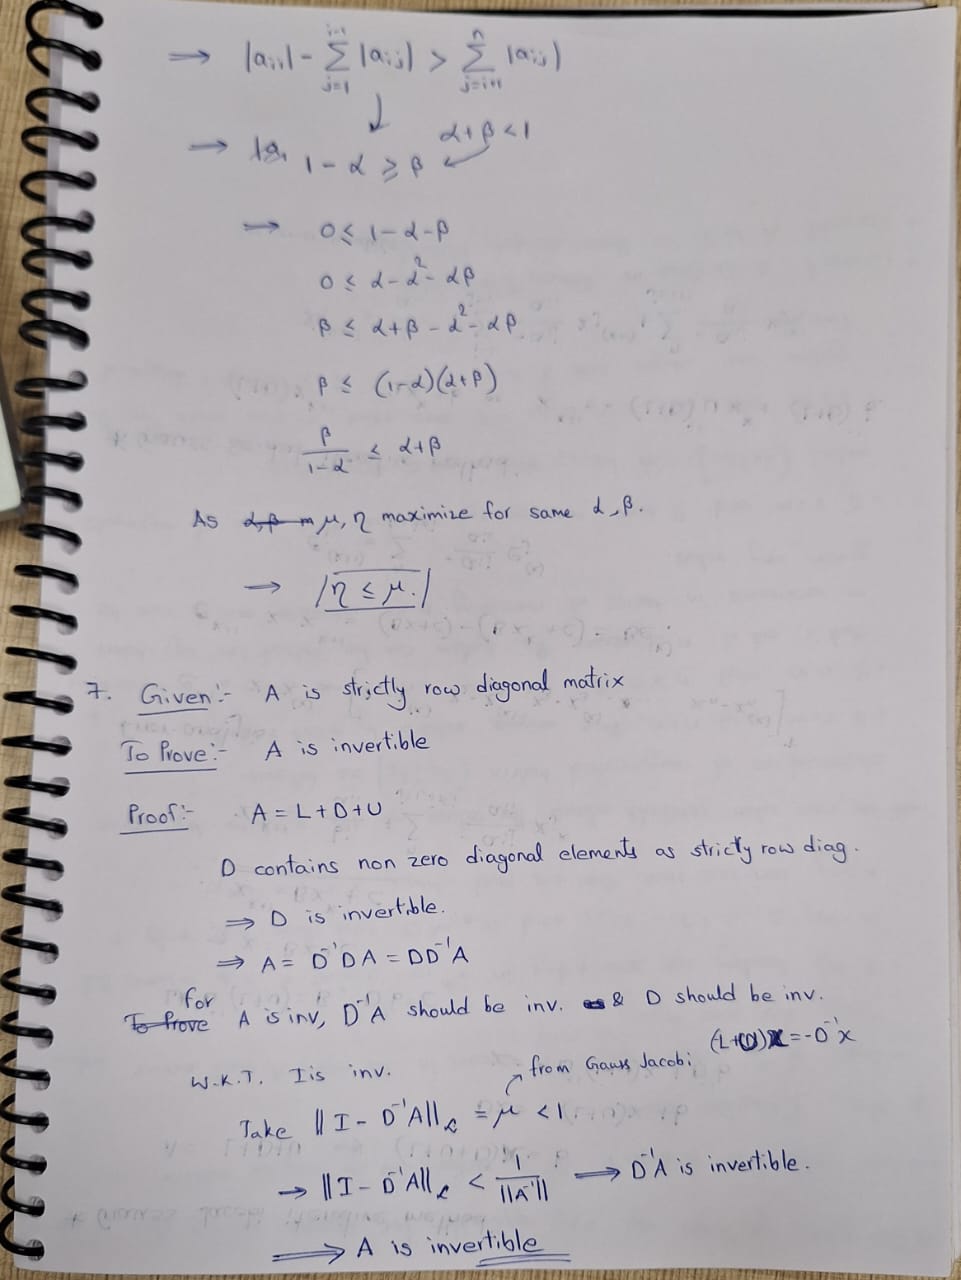 ⇒ |aᵢᵢ| - Σ_{j=1}^{i-1} |aᵢⱼ| > Σ_{j=i+1}^{n} |aᵢⱼ|
↓ α+β<1
→ 1-α ≥ β
⇒ 0 ≤ 1-α-β
0 ≤ α-α²-αβ
β ≤ α+β-α²-αβ
β ≤ (1-α)(α+β)
β/(1-α) ≤ α+β
As μ, η maximize for same α, β.
→ |η ≤ μ.|
7. Given:- A is strictly row diagonal matrix
To Prove:- A is invertible
Proof:- A = L+D+U
D contains non zero diagonal elements as strictly row diag.
⇒ D is invertible.
⇒ A = D⁻¹DA = DD⁻¹A
for A is inv, D⁻¹A should be inv. & D should be inv.
(L+U)x=-D⁻¹x
W.K.T. I is inv. from Gauss Jacobi
Take ||I - D⁻¹A|| = μ < 1
→ ||I - D⁻¹A|| < 1/||A⁻¹|| ⇒ D⁻¹A is invertible.
⇒ A is invertible